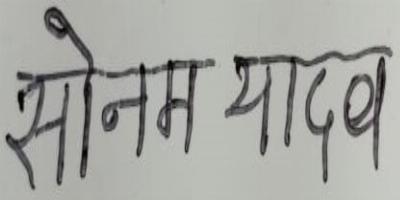 सोनम यादव